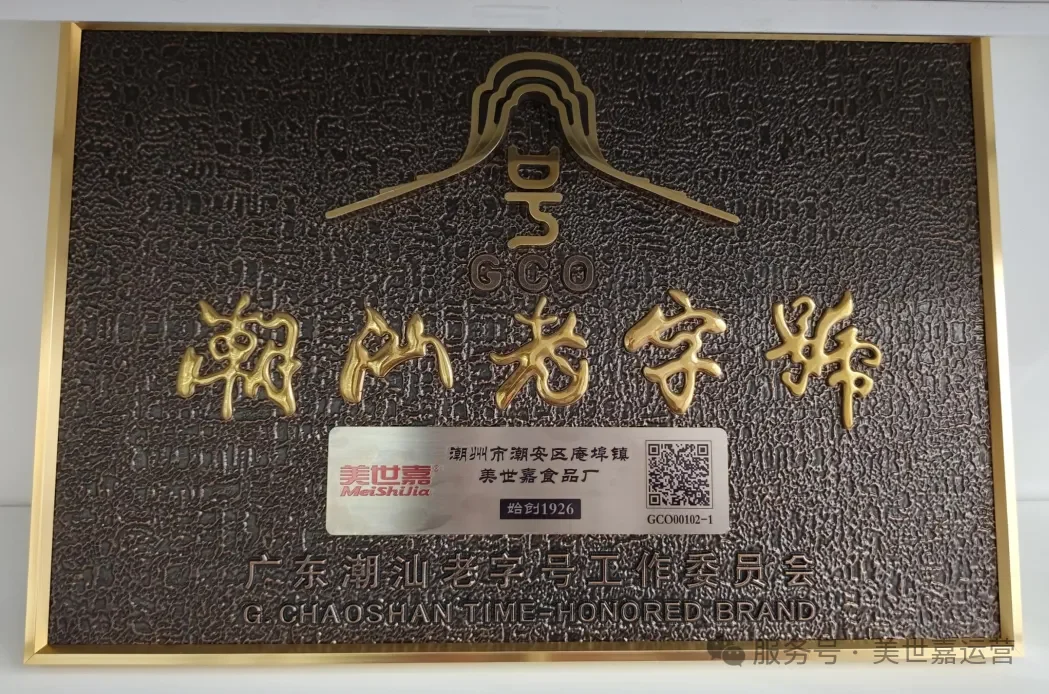 号
GCO
潮汕老字號
美世嘉®
MeiShiJia
潮州市潮安区庵埠镇
美世嘉食品厂
始创1926
GCO00102-1
广东潮汕老字号工作委员会
G.CHAOSHAN TIME-HONORED BRAND
服务号·美世嘉运营